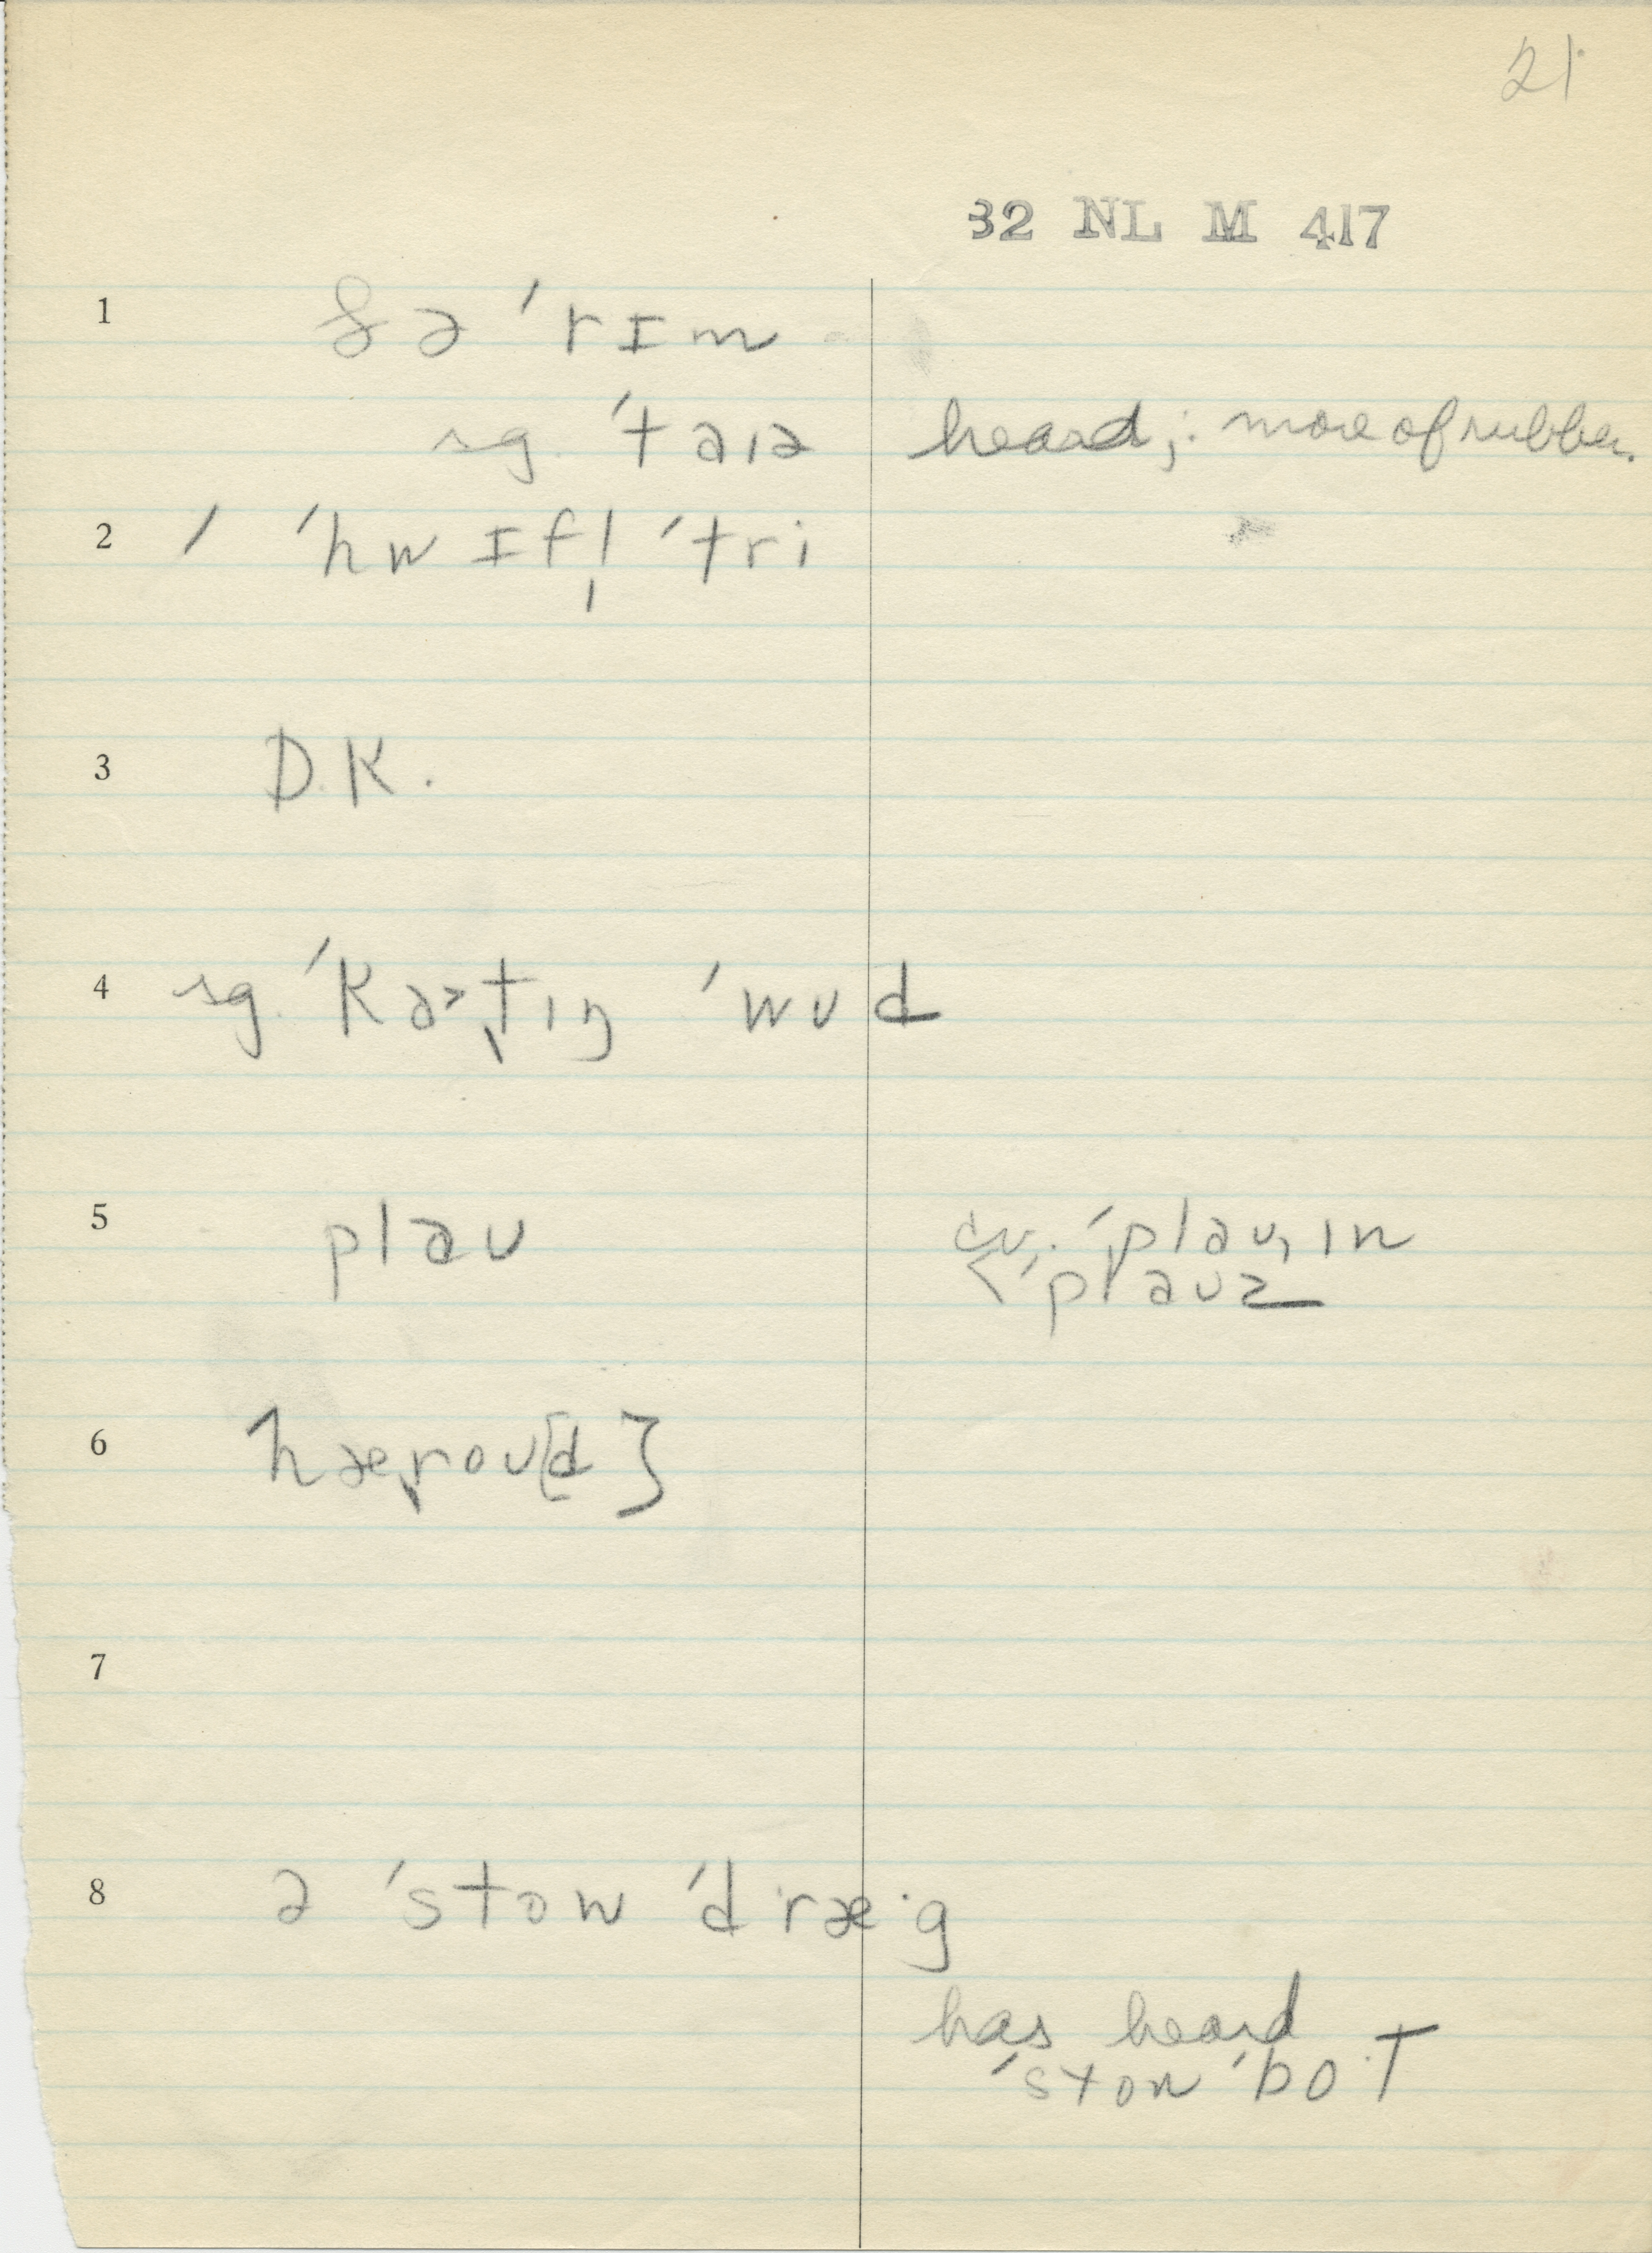 21
32 NL M 417
1 ðə ˈrɪm
sg. ˈtaɪə heard; : more of rubber.
2 / ˈhwɪfl̩ ˈtri
3 D.K.
4 sg. ˈkaˑt̬ɪŋ ˈwud
5 plaʊ cv. ˈplaʊˌɪn
< ˈplaʊz
6 hærou[d]
7
8 ə ˈston ˈdræˑg
has heard
ˈston ˈboˑt